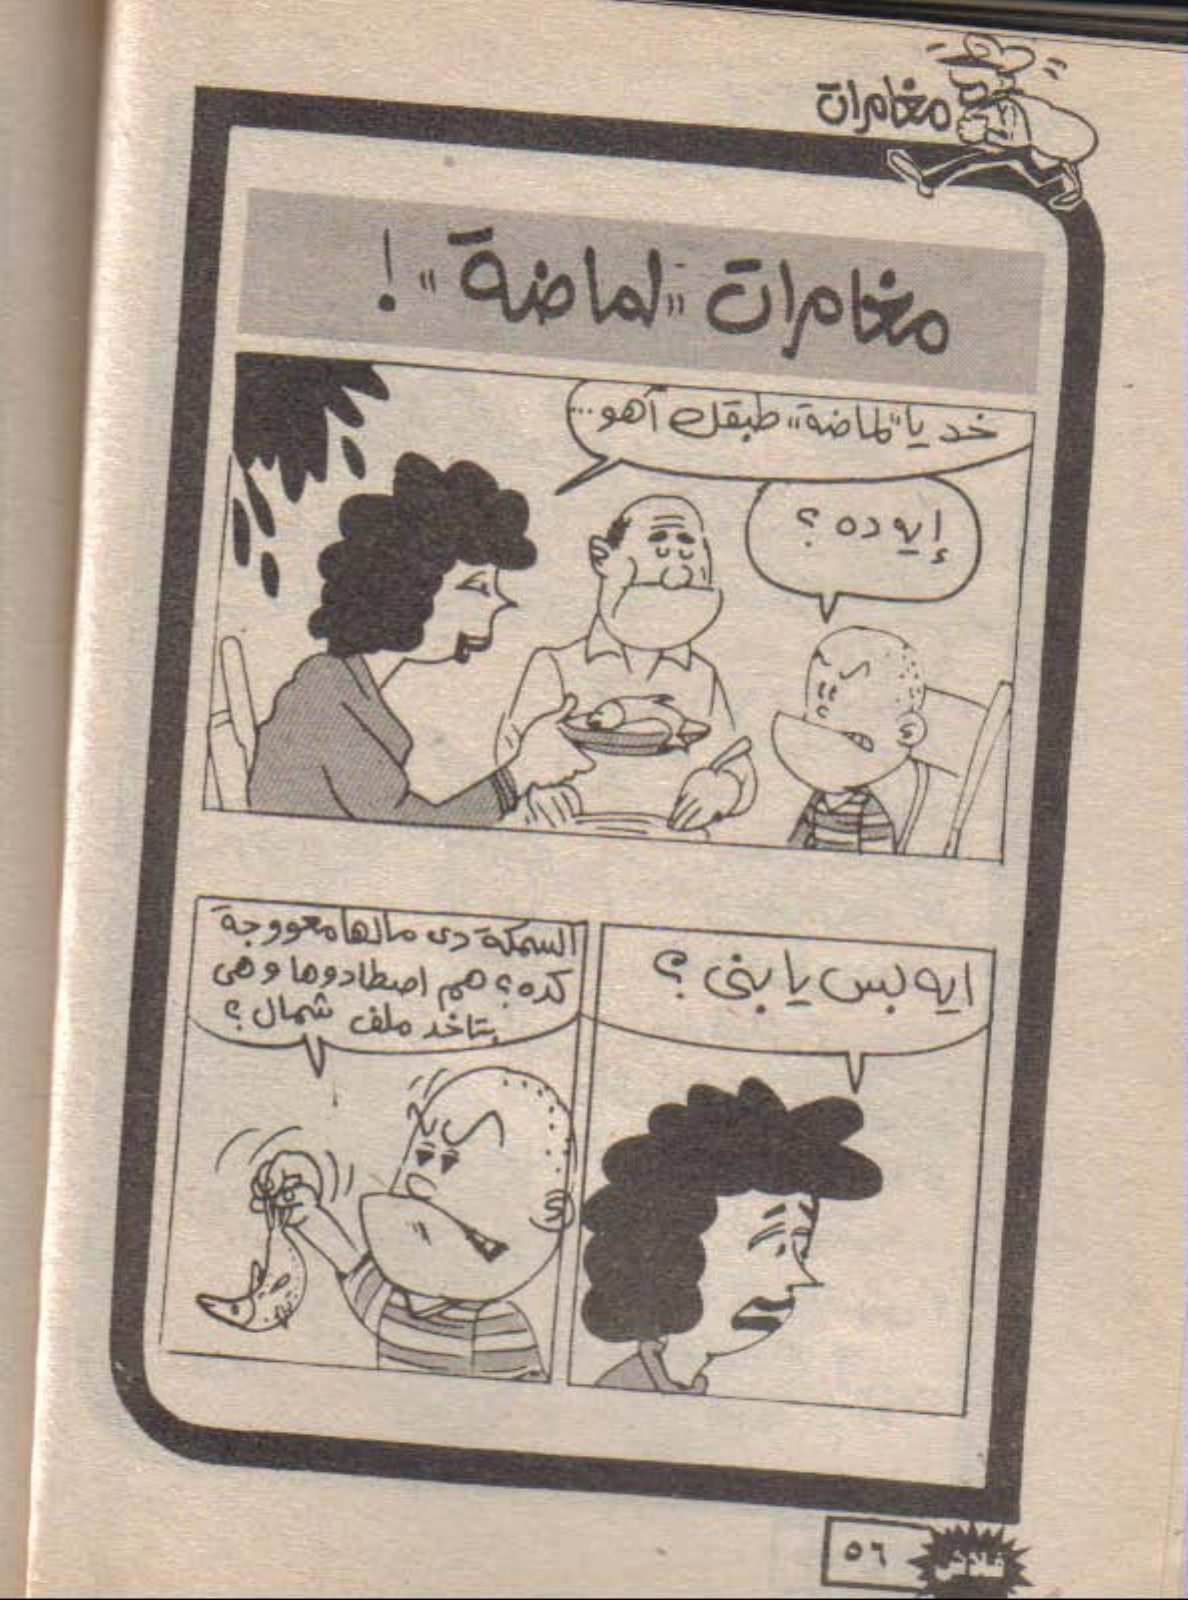 مغامرات
مغامرات "لماضة"!
خد يا "لماضة" طبقك أهو...
إيه ده؟
ايه بس يا بنى؟
السمكة دى مالها معووجة
كده؟ هم اصطادوها وهى
بتاخد ملف شمال؟
٥٦
فلاش